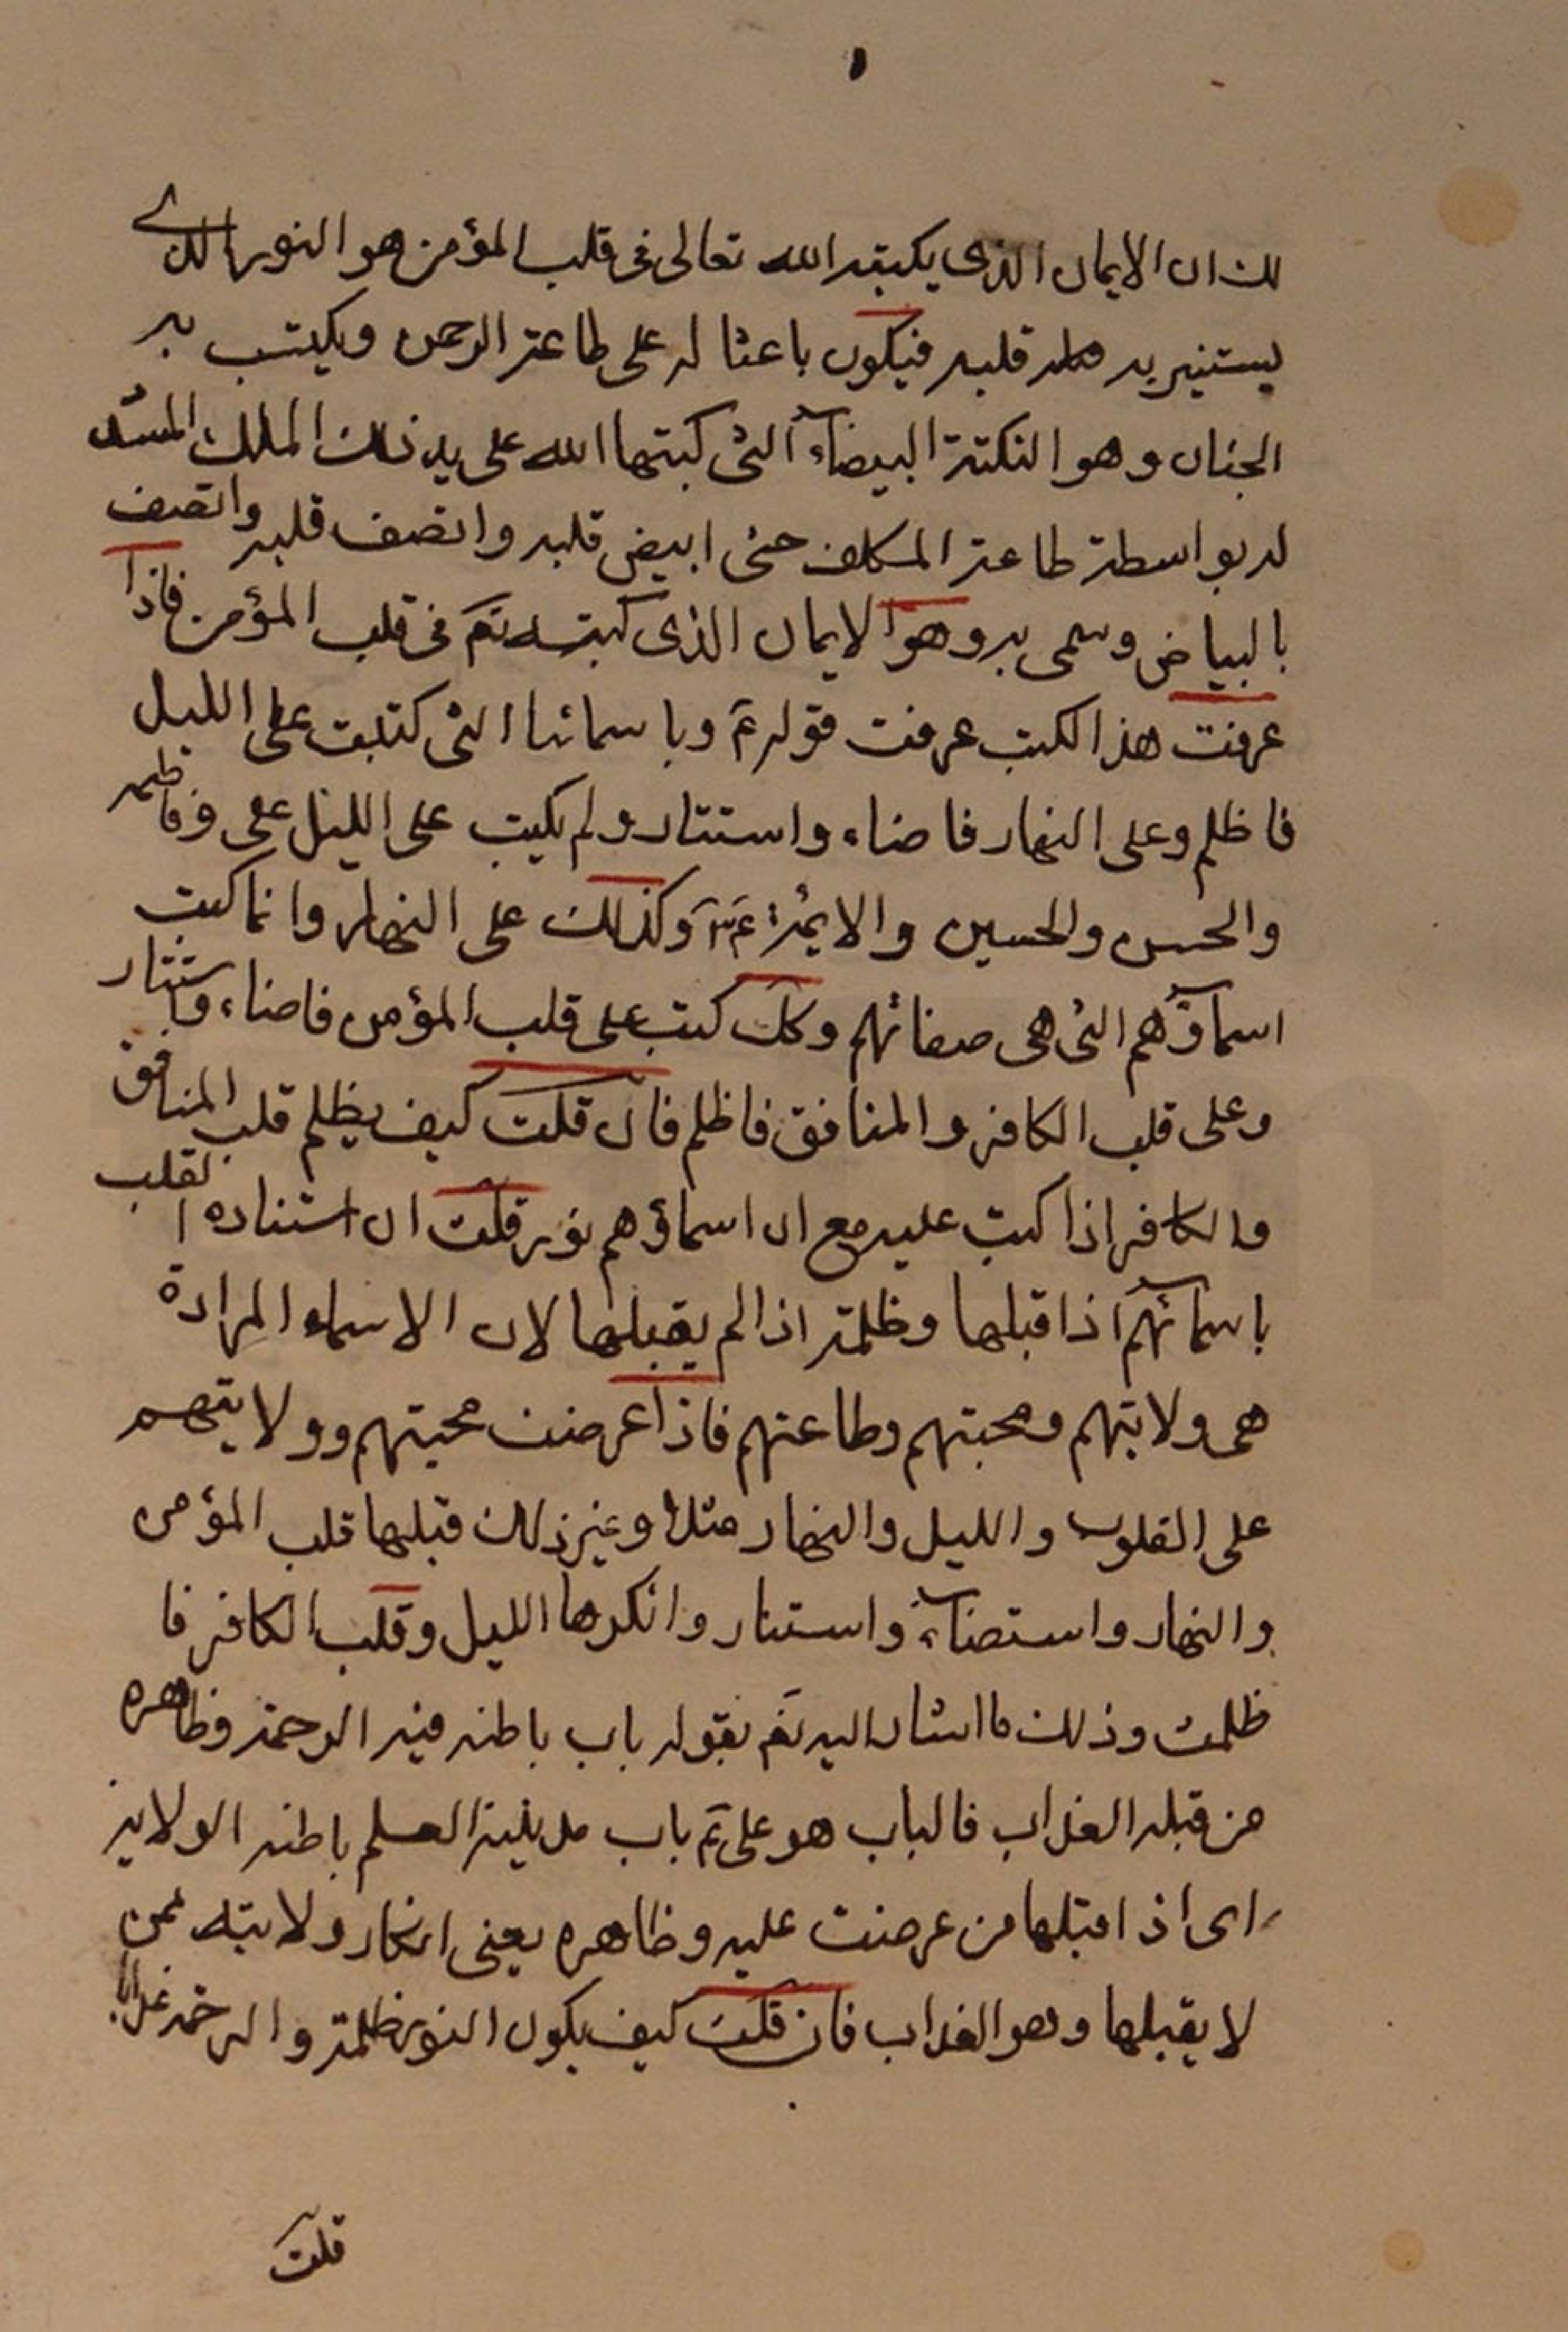 لك ان الايمان الذى يكتبه الله تعالى فى قلب المؤمن هو النور الذى
يستنير به قلبه فيكون باعثا له على طاعة الرحمن ويكتسب به
الجنان وهو النكتة البيضاء التى كتبها الله على يد ذلك الملك المسدد
له بواسطة طاعة المكلف حتى ابيض قلبه واتصف قلبه واتصف
بالبياض وسمى به وهو الايمان الذى كتبه تع فى قلب المؤمن فاذا
عرفت هذا الكتب عرفت قوله ع وباسمائنا التى كتبت على الليل
فاظلم وعلى النهار فاضاء واستنار ولم يكتب على الليل على وفاطمه
والحسن والحسين والائمة ع وكذلك على النهار وانما كتب
اسماؤهم التى هى صفاتهم وكك كتب على قلب المؤمن فاضاء واستنار
وعلى قلب الكافر والمنافق فاظلم فان قلت كيف يظلم قلب المنافق
والكافر اذا كتب عليه مع ان اسماؤهم نور قلت ان استناره القلب
باسمائهم اذا قبلها وظلمته اذا لم يقبلها لان الاسماء المرادة
هى ولايتهم ومحبتهم وطاعتهم فاذا عرضت محبتهم وولايتهم
على القلوب والليل والنهار مثلا وغير ذلك قبلها قلب المؤمن
والنهار واستضاء واستنار وانكرها الليل وقلب الكافر فا
ظلمت وذلك ما اشار اليه تع بقوله باب باطنه فيه الرحمة وظاهره
من قبله العذاب فالباب هو على ع باب مدينة العلم باطنه الولاية
اى اذا قبلها من عرضت عليه وظاهره يعنى انكار ولايته لمن
لا يقبلها وهو العذاب فان قلت كيف يكون النور ظلمة والرحمة عذابا
قلت